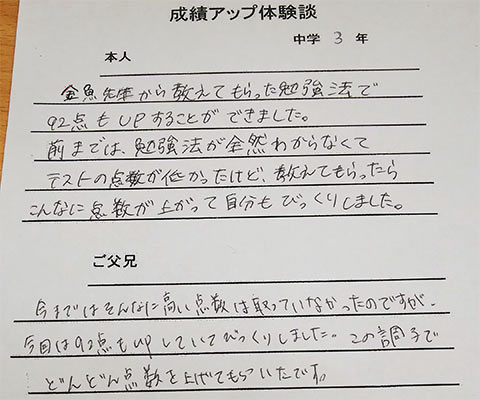 成績アップ体験談
中学 3 年
本人
金魚先生から教えてもらった勉強法で
92点もUPすることができました。
前までは、勉強法が全然わからなくて
テストの点数が低かったけど、教えてもらったら
こんなに点数が上がって自分もびっくりしました。
ご父兄
今まではそんなに高い点数は取っていなかったのですが、
今回は92点もUPしていてびっくりしました。この調子で
どんどん点数を上げてもらいたいです。